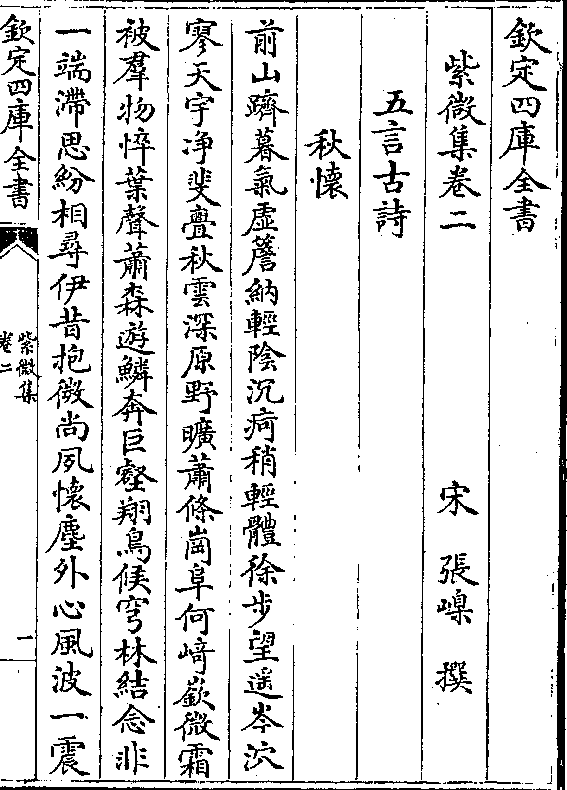 欽定四庫全書
紫微集卷二
宋 張嵲 撰
五言古詩
秋懷
前山躋暮氣虛簷納輕陰沉疴稍輕體徐步望遥岑泬
寥天宇净斐亹秋雲深原野曠蕭條崗阜何﨑嶔微霜
被羣物悴葉聲蕭森遊鱗奔巨壑翔鳥候穹林結念非
一端滯思紛相尋伊昔抱微尚夙懷塵外心風波一震
欽定四庫全書
紫微集
卷二
一